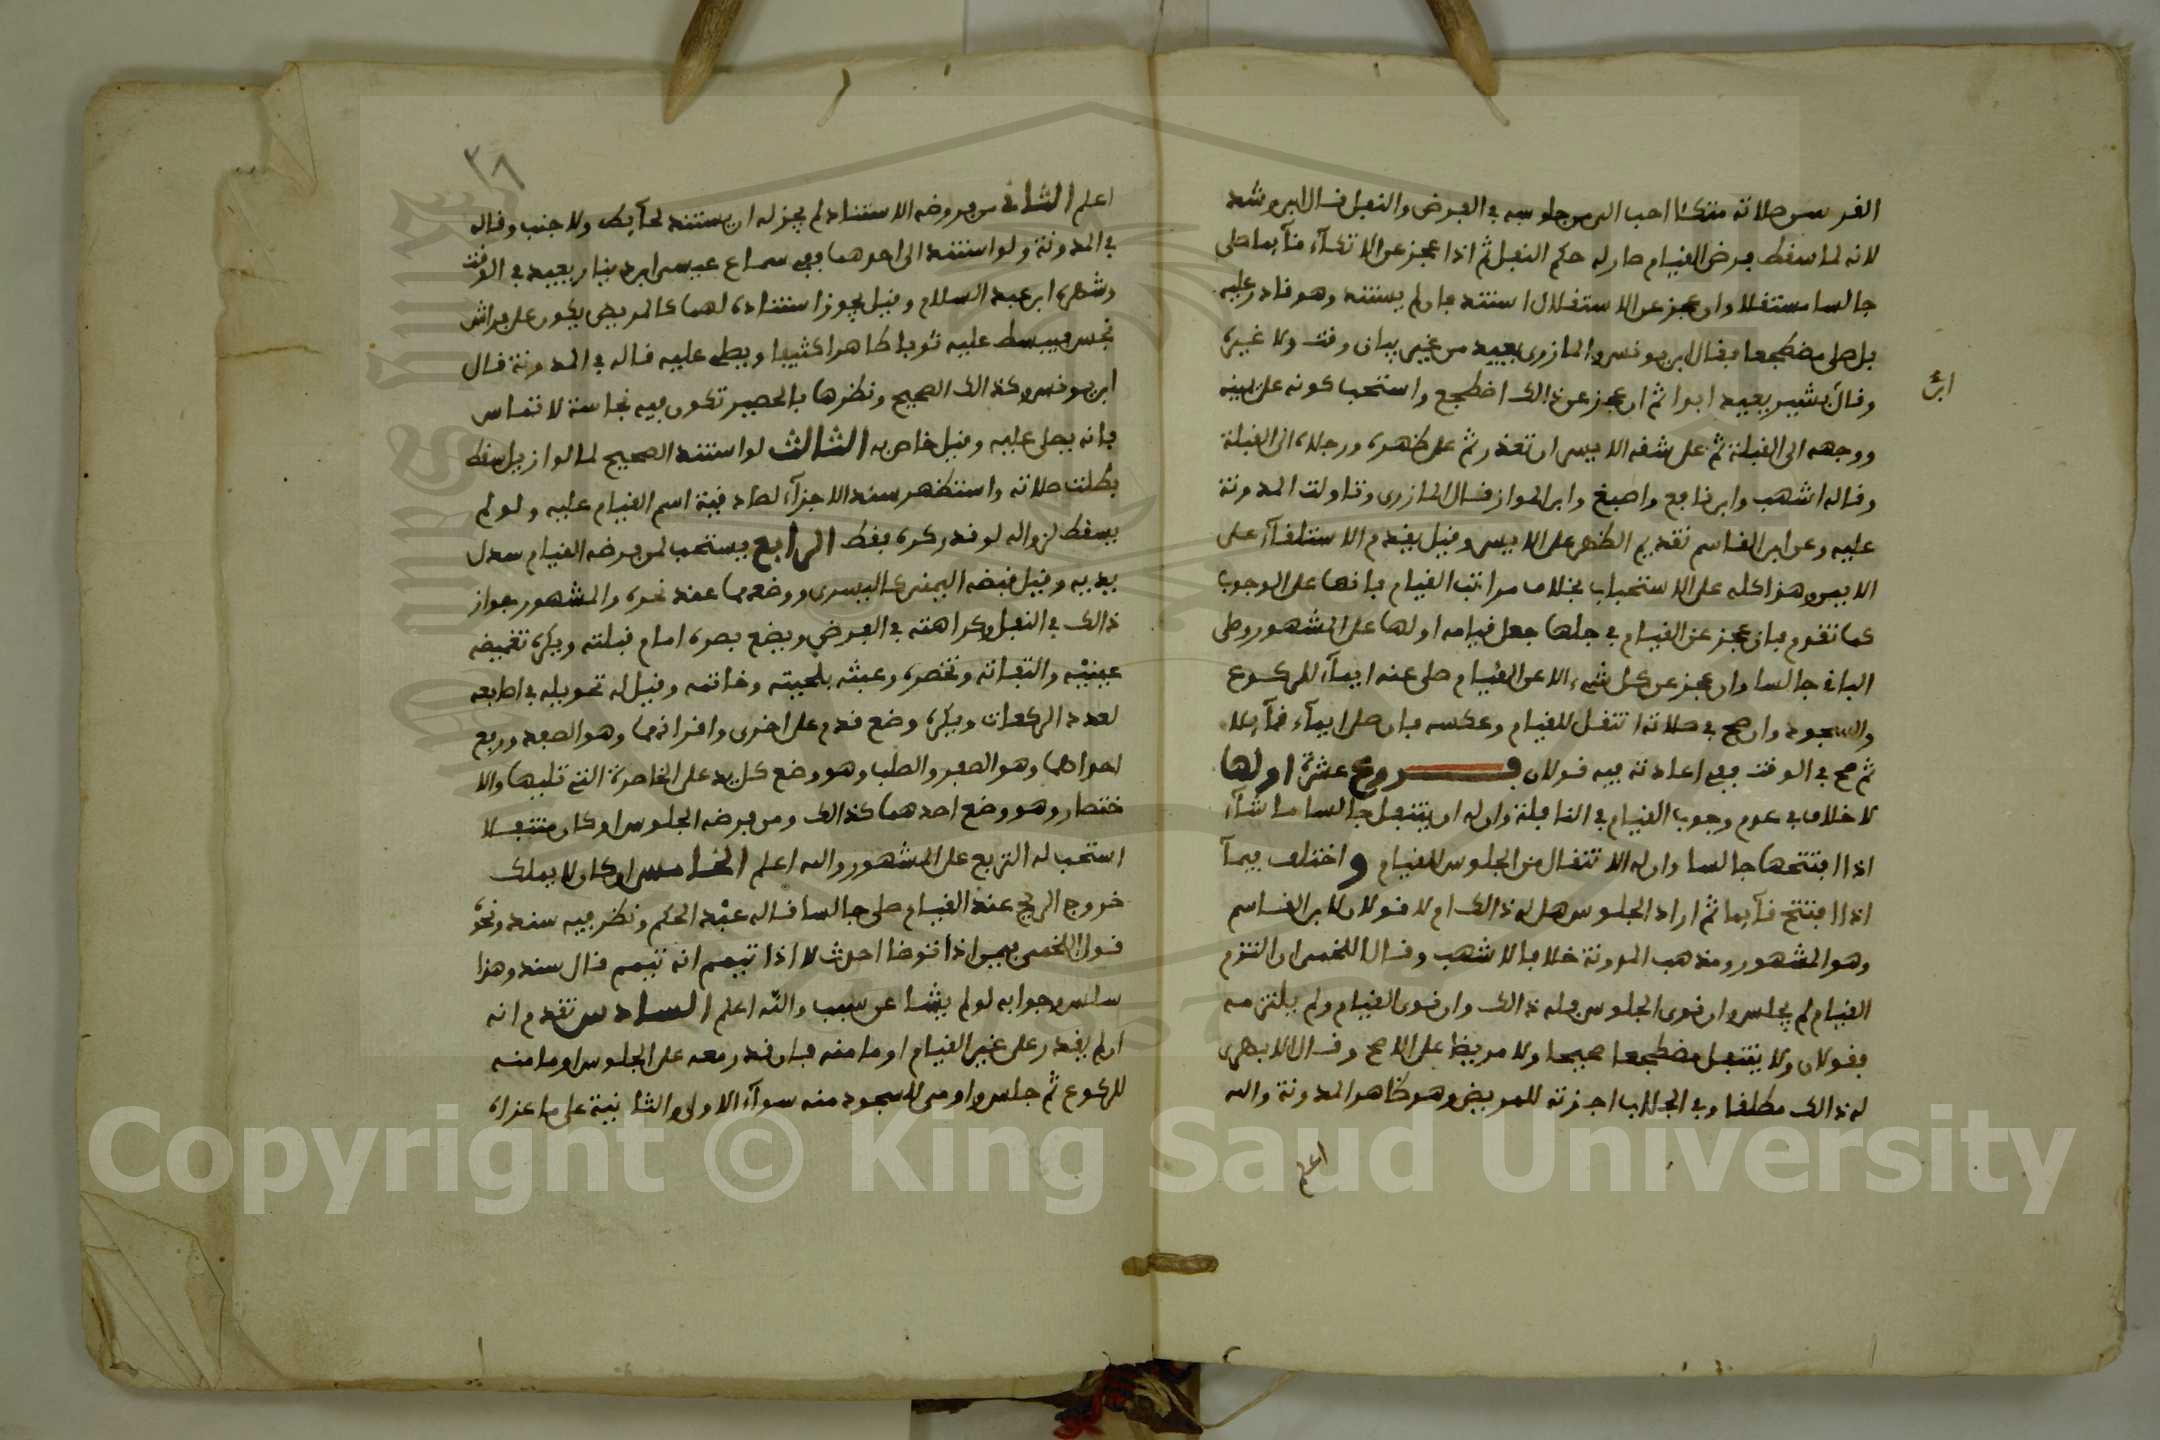 صلاته متكئا احب الى من جلوسه في الفرض والنفل قال ابن رشد
لانه لما سقط فرض القيام صار له حكم النفل ثم اذا عجز عن الاتكآء قآيما صلى
جالسا مستقلا وان عجز عن الاستقلال استند فان لم يستند وهو قادر عليه
بل صلى مضطجعا فقال ابن يونس والمازري يعيد من غير بيان وقت ولا غيره
وقال بشير يعيد ابدا ثم ان عجز عن ذالك اضطجع واستحب كونه على يمينه
ابن
ووجهه الى القبلة ثم على شقه الايسر ان تعذر ثم على ظهره ورجلاه الى القبلة
وقاله اشهب وابن نافع واصبغ وابن المواز قال المازري وتاولت المدونة
عليه وعن ابن القاسم تقديم الظهر على الايسر وقيل يقدم الاستلقآء على
الايمن وهذا كله على الاستحباب بخلاف مراتب القيام فانها على الوجوب
كما تقدم فان عجز عن القيام في جلها جعل قيامه اولها على المشهور وصلى
الباقي جالسا وان عجز عن كل شيء الا عن القيام صلى عنه ايمآء للركوع
والسجود وان صح في صلاته انتقل للقيام وعكسه فان صلى ايمآء قآيلا
ثم صح في الوقت ففي اعادته فيه قولان فروع عشرة اولها
لا خلاف في عدم وجوب القيام في النافلة وان له ان يتنفل جالسا ما شآء
اذا افتتحها جالسا وان له الانتقال من الجلوس للقيام واختلف فيمآ
اذا افتتح قآيما ثم اراد الجلوس هل له ذالك ام لا قولان لابن القاسم
وهو المشهور ومذهب المدونة خلافا لاشهب وقال اللخمي ان التزم
القيام لم يجلس وان نوى الجلوس فله ذالك وان نوى القيام ولم يلتزمه
فقولان ولا يتنفل مضطجعا صحيحا ولا مريضا على الاصح وقال الابهري
له ذالك مطلقا وفي الجلاب اجزته للمريض وهو ظاهر المدونة والله
اعلم
٣٨
اعلم الثاني من فروضه الاستناد لم يجز له ان يستند لحآيض ولا جنب وقاله
في المدونة ولو استند الى احدهما ففي سماع عيسى ابن دينار يعيد في الوقت
وشهره ابن عبد السلام وقيل يجوز استناده لهما كالمريض يكون على فراش
نجس فيبسط عليه ثوبا طاهرا كثيفا ويصلي عليه قاله في المدونة قال
ابن يونس وكذالك الصحيح ونظرها بالحصير تكون فيه نجاسة لا تماس
فانه يصلى عليه وقيل خاص به الثالث لو استند الصحيح لما لو ازيل سقط
بطلت صلاته واستظهر سند الاجزآء لصادقية اسم القيام عليه ولو لم
يسقط لزواله لو قدر كره فقط الرابع يستحب لمن فرضه القيام سدل
يديه وقيل قبضه اليمنى اليسرى ووضعهما عند نحره والمشهور جواز
ذالك في النفل وكراهته في الفرض ويضع بصره امام قبلته ويكره تغميضه
عينيه والتفاته وتخصره وعبثه بلحيته وخاتمه وقيل له تحويله في اصابعه
لعدد الركعات ويكره وضع قدم على اخرى واقرانهما وهو الصفد ورفع
احداهما وهو الصفن والصلب وهو وضع كل يد على الخاصرة التي تليها والا
ختصار وهو وضع احدهما كذالك ومن فرضه الجلوس او كان متنفلا
استحب له التربع على المشهور والله اعلم الخامس ان كان لا يملك
خروج الريح عند القيام صلى جالسا قاله عبد الحكم ونظر فيه سند ونحو
قول اللخمي فيمن اذا توضا احدث لا اذا تيمم انه تيمم قال سند وهذا
سلس وجوابه لو لم ينشا عن سبب والله اعلم السادس تقدم انه
ان لم يقدر على غير القيام اوما منه فان قدر معه على الجلوس اوما منه
للركوع ثم جلس واومى للسجود منه سوآء الاولى والثانية على ما عزاه
Copyright © King Saud University